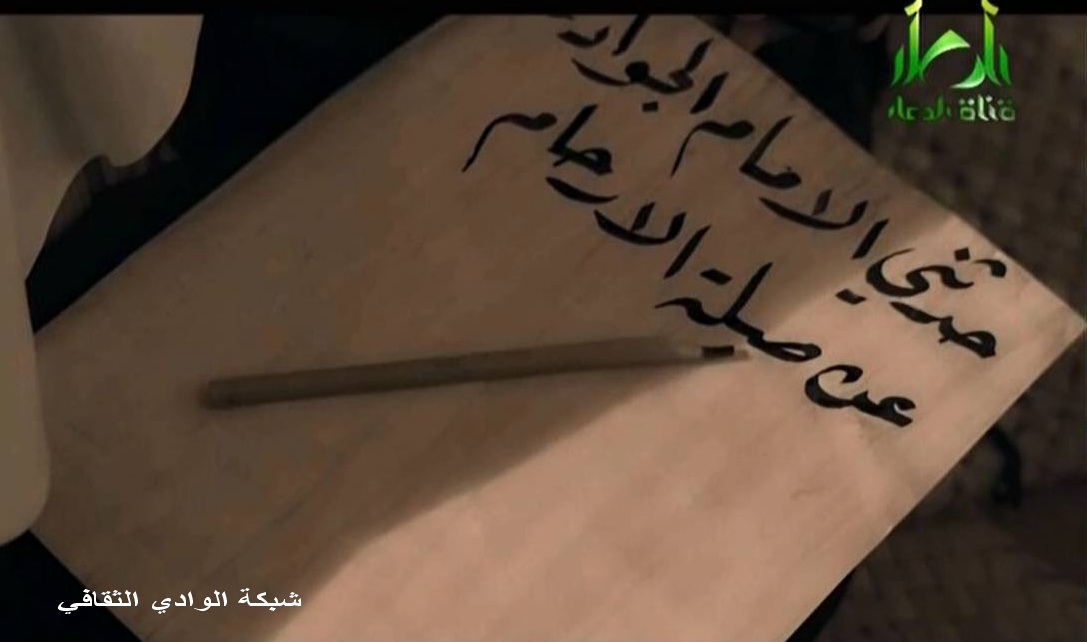 حدثني الامام الجواد
عن صلة الارحام
قناة الدعاء
شبكة الوادي الثقافي